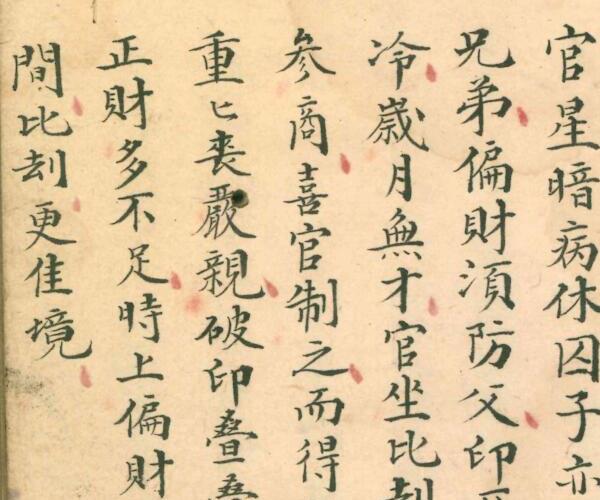 官星暗病休囚子亦
兄弟偏財須防父印
冷歲月無才官坐比刦
參商喜官制之而得
重匕喪嚴親破印疊疊
正財多不足時上偏財
間比刦更佳境